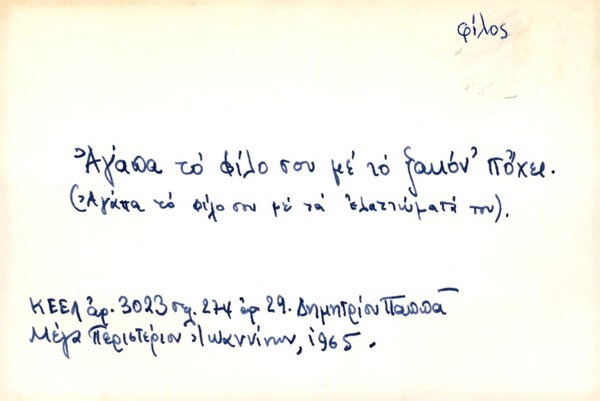 φίλος
Ἀγάπα τό φίλο σου μέ τό ζακόν' πὄχει.
(Ἀγάπα τό φίλο σου μέ τά ἐλαττώματά του).
ΚΕΕΛ ἀρ. 3023 σελ. 274 ἀρ 29. Δημητρίου Παππᾶ
Μέγα Περιστέριον Ἰωαννίνων, 1965.